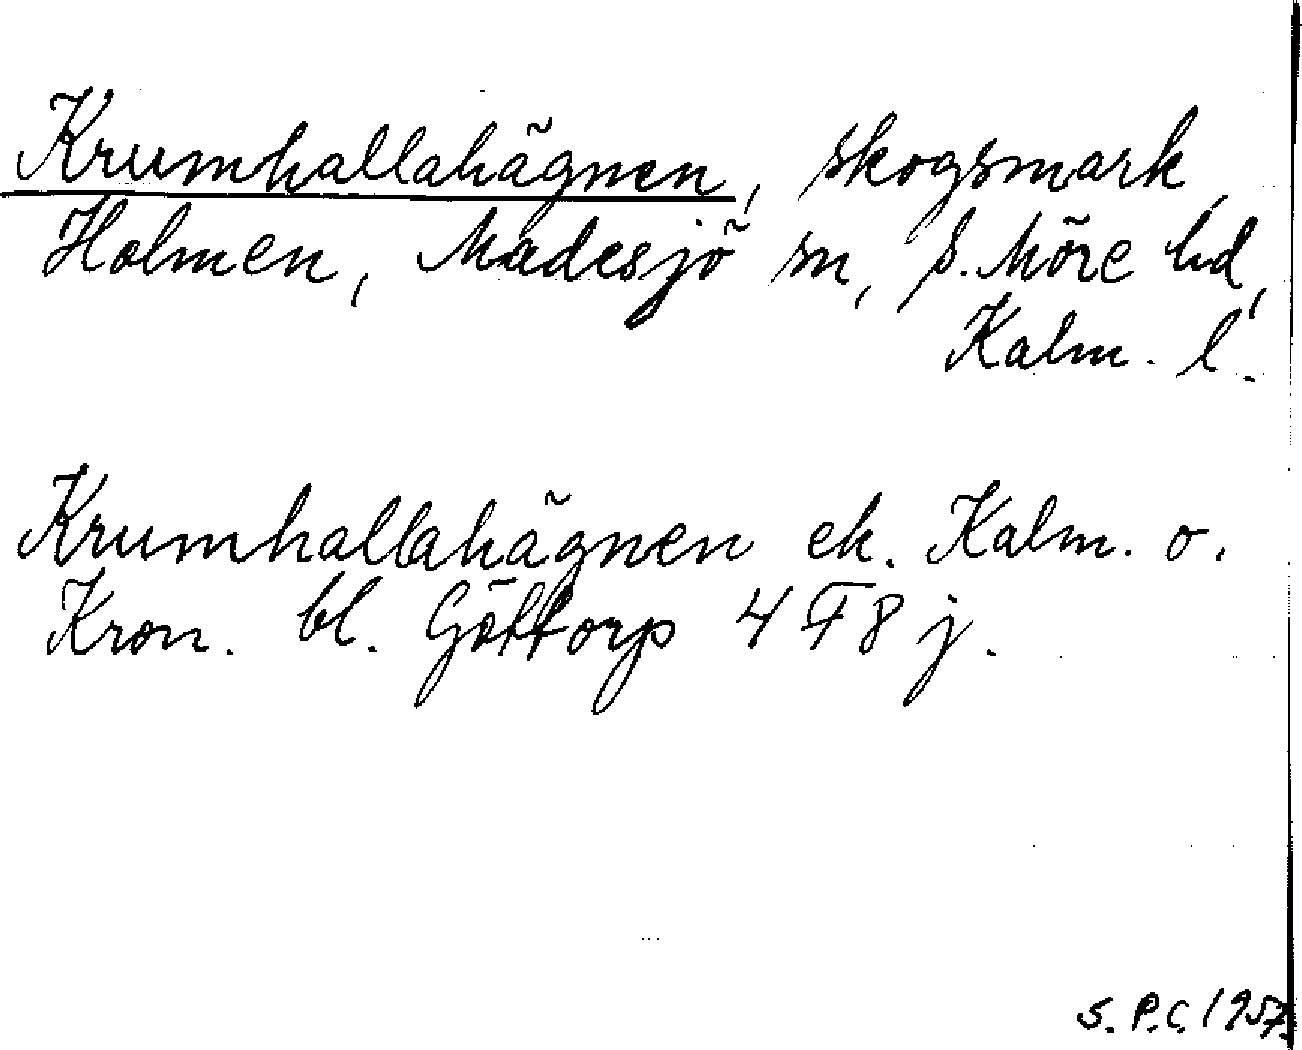 Krumhallahägnen, skogsmark,
Holmen, Madesjö sn, S. Möre hd,
Kalm. l.
Krumhallahägnen ek. Kalm. o.
Kron. bl. Göttorp 4 F 8 j.
S. P.C. 1957.